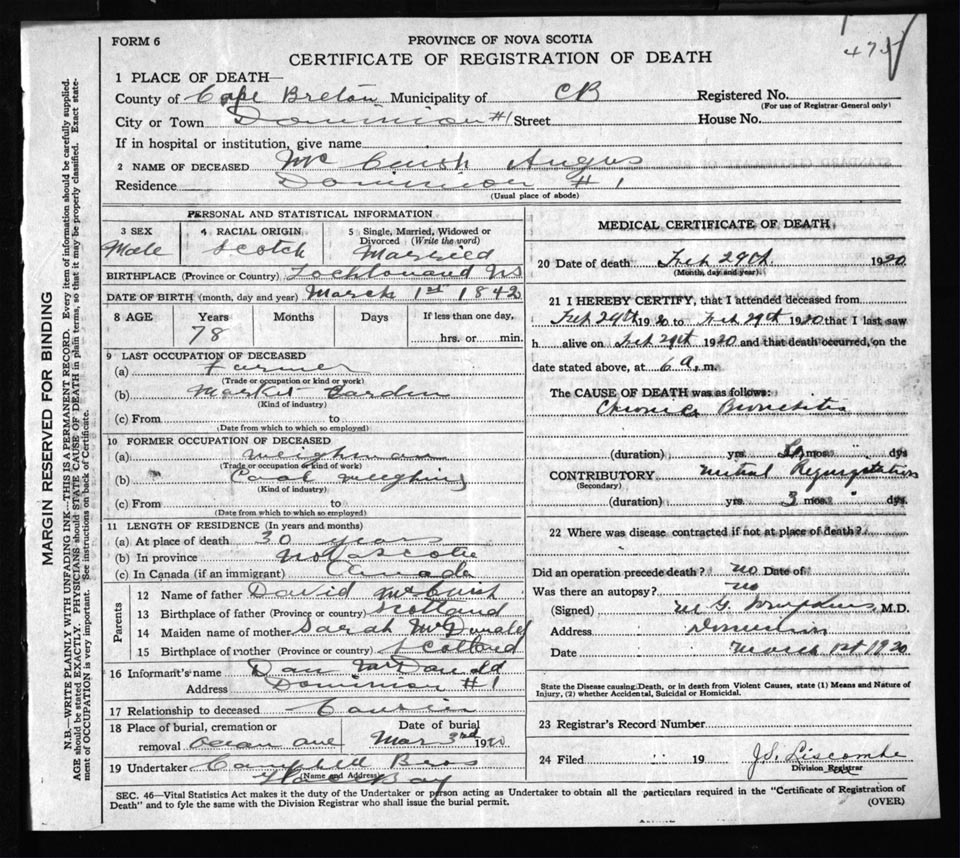 FORM 6
PROVINCE OF NOVA SCOTIA
CERTIFICATE OF REGISTRATION OF DEATH
1 PLACE OF DEATH—
County of Cape Breton Municipality of CB Registered No.
(For use of Registrar General only)
City or Town Dominion #1 Street House No.
If in hospital or institution, give name
2 NAME OF DECEASED Mc Cuish Angus
Residence Dominion # 1
(Usual place of abode)
PERSONAL AND STATISTICAL INFORMATION
3 SEX Male
4 RACIAL ORIGIN Scotch
5 Single, Married, Widowed or Divorced (Write the word) Married
BIRTHPLACE (Province or Country) NS
DATE OF BIRTH (month, day and year) March 1st 1842
8 AGE Years Months Days If less than one day,
78 hrs. or min.
9 LAST OCCUPATION OF DECEASED
(a) Farmer
(Trade or occupation or kind or work)
(b) Market Garden
(Kind of industry)
(c) From to
(Date from which to which so employed)
10 FORMER OCCUPATION OF DECEASED
(a) Weighman
(Trade or occupation or kind of work)
(b) Coal weighing
(Kind of industry)
(c) From to
(Date from which to which so employed)
11 LENGTH OF RESIDENCE (In years and months)
(a) At place of death 30 years
(b) In province Nova Scotia
(c) In Canada (if an immigrant) Canada
Parents
12 Name of father David McCuish
13 Birthplace of father (Province or country) Scotland
14 Maiden name of mother Sarah McDonald
15 Birthplace of mother (Province or country) Scotland
16 Informant's name Dan McDonald
Address Dominion #1
17 Relationship to deceased Cousin
18 Place of burial, cremation or removal Ocean ave
Date of burial Mar 3rd 1920
19 Undertaker Campbell Bros
(Name and Address)
Glace Bay
MEDICAL CERTIFICATE OF DEATH
20 Date of death Feb 29th 1920
(Month, day and year)
21 I HEREBY CERTIFY, that I attended deceased from
Feb 29th 1920 to Feb 29th 1920 that I last saw
h alive on Feb 29th 1920 and that death occurred, on the
date stated above, at 6 a. m.
The CAUSE OF DEATH was as follows:
Chronic Bronchitis
(duration) yrs. mos. dys
CONTRIBUTORY Mitral Regurgitation
(Secondary)
(duration) yrs. 3 mos. dys.
22 Where was disease contracted if not at place of death?
Did an operation precede death? no Date of
Was there an autopsy? no
(Signed) M. G. M.D.
Address Dominion
Date March 1st 1920
State the Disease causing Death, or in death from Violent Causes, state (1) Means and Nature of
Injury, (2) whether Accidental, Suicidal or Homicidal.
23 Registrar's Record Number
24 Filed 19 J.S. Liscombe
Division Registrar
SEC. 46—Vital Statistics Act makes it the duty of the Undertaker or person acting as Undertaker to obtain all the particulars required in the "Certificate of Registration of
Death" and to fyle the same with the Division Registrar who shall issue the burial permit.
(OVER)
MARGIN RESERVED FOR BINDING
N.B.—WRITE PLAINLY WITH UNFADING INK—THIS IS A PERMANENT RECORD. Every item of information should be carefully supplied.
AGE should be stated EXACTLY. PHYSICIANS should STATE CAUSE OF DEATH in plain terms, so that it may be properly classified. Exact state-
ment of OCCUPATION is very important. See instructions on back of Certificate.